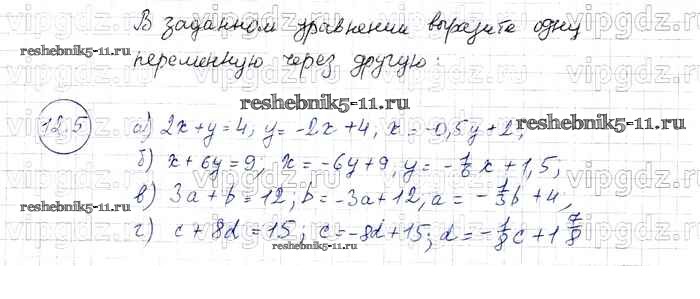 В заданном уравнении выразите одну
reshebnik5-11.ru
переменную через другую:
reshebnik5-11.ru
12.5 а) 2x+y=4, y=-2x+4, x=-0,5y+2;
reshebnik5-11.ru
б) x+6y=9; x=-6y+9, y=-1/6x+1,5;
в) 3a+b=12; b=-3a+12; a=-1/3b+4,
reshebnik5-11.ru
г) c+8d=15; c=-8d+15; d=-1/8c+1 7/8
vipgdz.ru